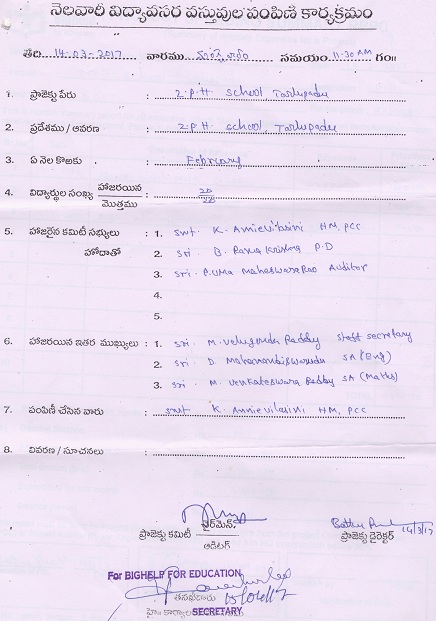 నెలవారీ విద్యావసర వస్తువుల పంపిణి కార్యక్రమం
తేది 14-03-2017 వారము మంగళవారం సమయం 11-30 AM గం॥
1. ప్రాజెక్టు పేరు : Z.P.H School Tarlupadu
2. ప్రదేశము / ఆవరణ : Z.P.H. School, Tarlupadu
3. ఏ నెల కొఱకు : February
4. విద్యార్థుల సంఖ్య హాజరయిన / మొత్తము :
5. హాజరైన కమిటీ సభ్యులు : 1. Smt K. Annievilasini HM, PCC
హోదాతో 2. Sri B. Rama Krishna P.D
3. Sri. P. Uma Maheswara Rao Auditor
4.
5.
6. హాజరయిన ఇతర ముఖ్యులు : 1. Sri. M. Velugonda Reddy Staff secretary
2. Sri. D. SA (Eng)
3. Sri. M. Venkateswara Reddy SA (Maths)
7. పంపిణీ చేసిన వారు : Smt K. Annievilasini HM, PCC
8. వివరణ / సూచనలు :
ప్రాజెక్టు కమిటీ ఛైర్మెన్ ప్రాజెక్టు డైరెక్టర్ 14/3/17
ఆడిటర్
For BIGHELP FOR EDUCATION
SECRETARY